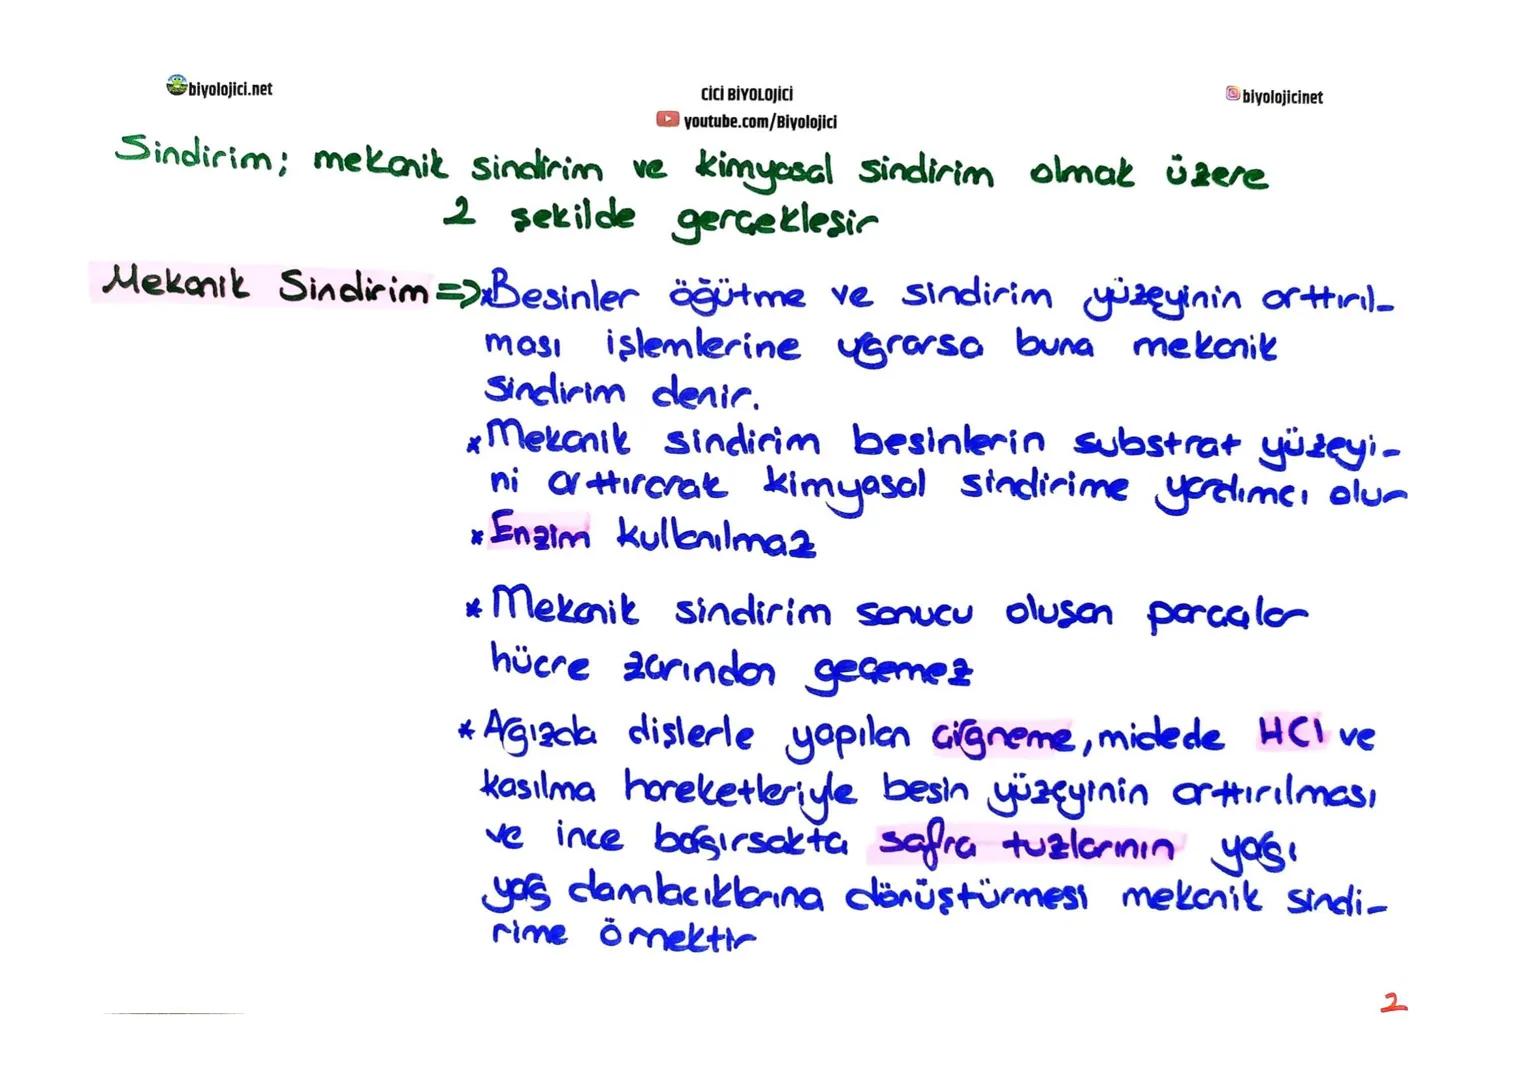 biyolojici.net
CİCİ BİYOLOJİCİ
biyolojicinet
youtube.com/Biyolojici
Sindirim; mekanik sindirim ve kimyasal sindirim olmak üzere
2 şekilde gerçekleşir
Mekanik Sindirim => *Besinler öğütme ve sindirim yüzeyinin arttırıl-
ması işlemlerine uğrarsa buna mekanik
sindirim denir.
*Mekanik sindirim besinlerin substrat yüzeyi-
ni arttırarak kimyasal sindirime yardımcı olur
*Enzim kullanılmaz
*Mekanik sindirim sonucu oluşan parçalar
hücre zarından geçemez
*Ağızda dişlerle yapılan çiğneme, midede HCl ve
kasılma hareketleriyle besin yüzeyinin arttırılması
ve ince bağırsakta safra tuzlarının yağı
yağ damlacıklarına dönüştürmesi mekanik sindi-
rime örnektir
2